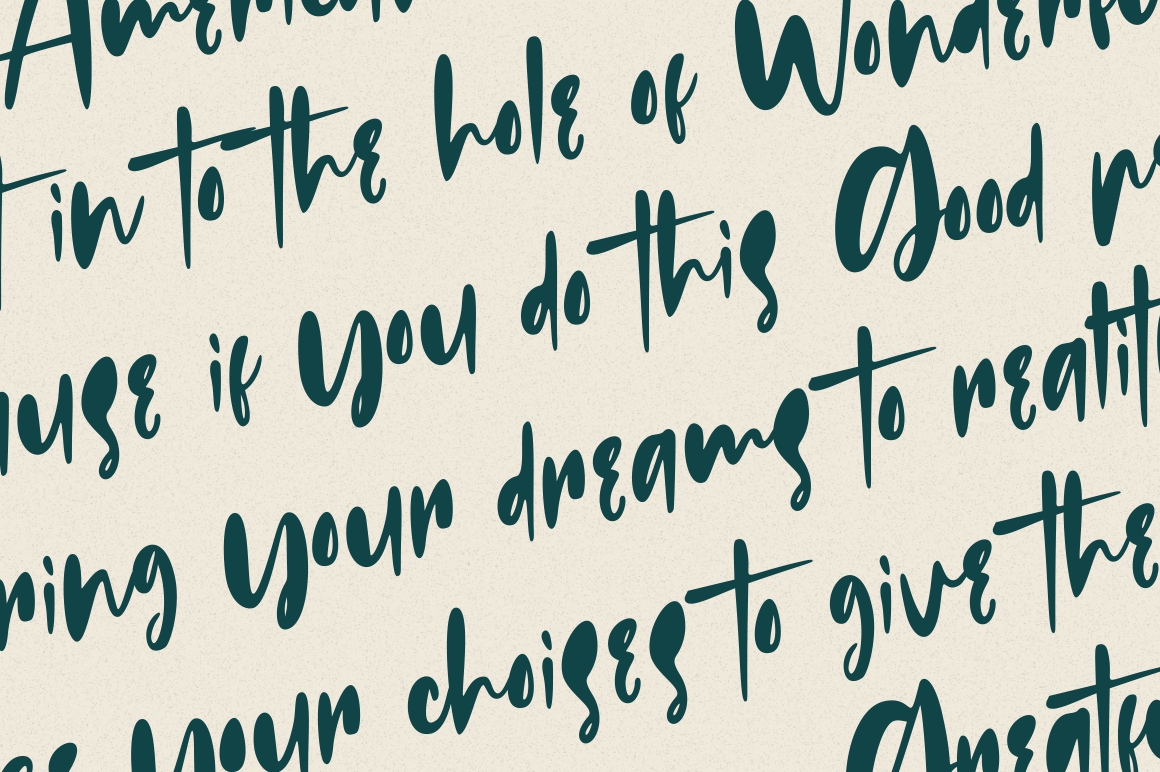 America
t in to the hole of Wonderfu
use if you do this Good
ming your dreams to realit
es your choises to give the
Greate